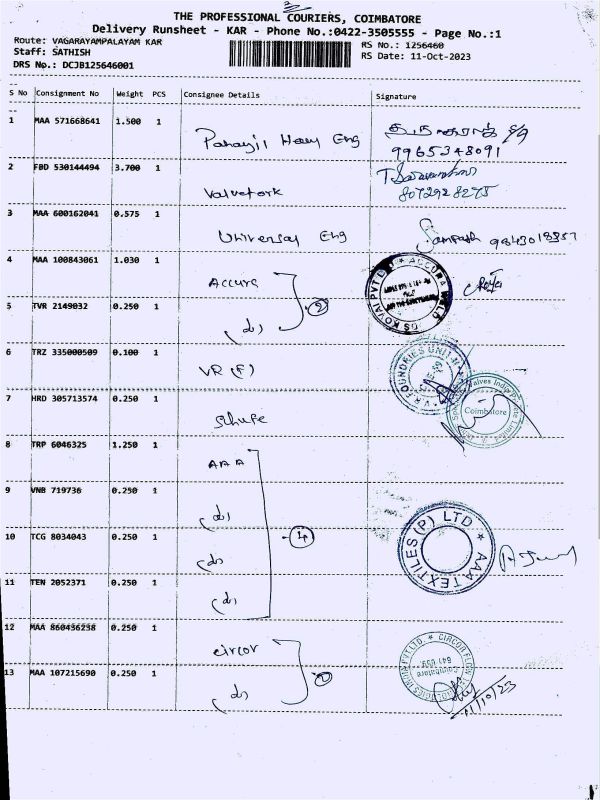 THE PROFESSIONAL COURIERS, COIMBATORE
Delivery Runsheet - KAR - Phone No.:0422-3505555 - Page No.:1
Route: VAGARAYAMPALAYAM KAR
RS No.: 1256460
Staff: SATHISH
RS Date: 11-Oct-2023
DRS No.: DCJB125646001
S No Consignment No Weight PCS Consignee Details Signature
1 MAA 571668641 1.500 1
Eng
9965348091
2 FBD 530144494 3.700 1
Valvetork
8072928275
3 MAA 600162041 0.575 1
Universal Eng
Sampath 9843018357
4 MAA 100843061 1.030 1
Accura
5 TVR 2149032 0.250 1
(do) 2
6 TRZ 335000509 0.100 1
VR (F)
V.R. FOUNDRIES UNIT-II
7 HRD 305713574 0.250 1
Coimbatore
8 TRP 6046325 1.250 1
AAA
9 VNB 719736 0.250 1
(do)
10 TCG 8034043 0.250 1
(do) 4
AAA TEXTILES (P) LTD
11 TEN 2052371 0.250 1
(do)
12 MAA 860436238 0.250 1
circor
13 MAA 107215690 0.250 1
(do) 2
11/10/23